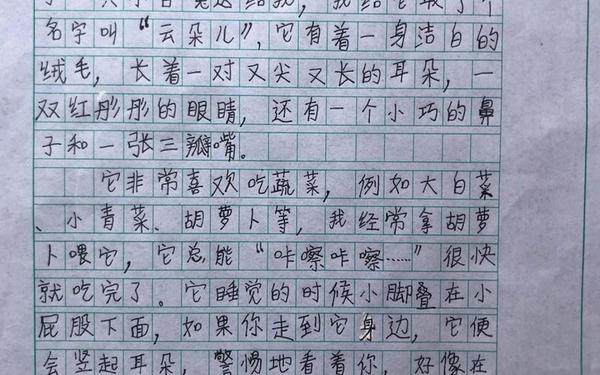 子一只小白兔送给我，我给它取了个
名字叫“云朵儿”，它有着一身洁白的
绒毛，长着一对又尖又长的耳朵，一
双红彤彤的眼睛，还有一个小巧的鼻
子和一张三瓣嘴。
它非常喜欢吃蔬菜，例如大白菜
、小青菜、胡萝卜等，我经常拿胡萝
卜喂它，它总能“咔嚓咔嚓……”很快
就吃完了。它睡觉的时候小脚叠在小
屁股下面，如果你走到它身边，它便
会竖起耳朵，警惕地看着你，好像在